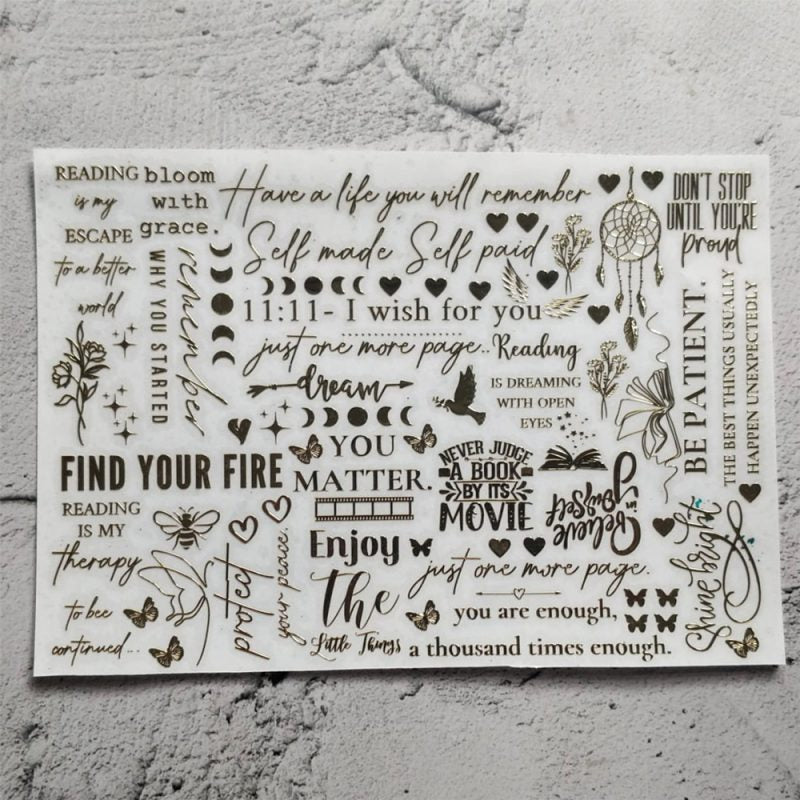 READING
is my
ESCAPE
to a better
world
bloom
with
grace.
Have a life you will remember
DON'T STOP
UNTIL YOU'RE
proud
Self made Self paid
remember
WHY YOU STARTED
11:11- I wish for you
just one more page..
Reading
IS DREAMING
WITH OPEN
EYES
dream
BE PATIENT.
THE BEST THINGS USUALLY
HAPPEN UNEXPECTEDLY
FIND YOUR FIRE
YOU
MATTER.
NEVER JUDGE
A BOOK
BY ITS
MOVIE
Believe
in
Yourself
READING
IS MY
therapy
to bee
continued...
protect
your peace.
Enjoy
the
Little Things
just one more page.
you are enough,
a thousand times enough.
Shine bright